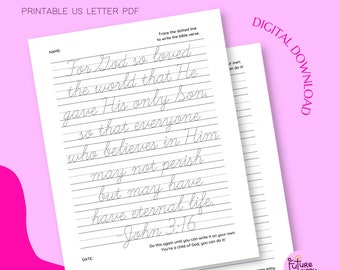 PRINTABLE US LETTER PDF
DIGITAL DOWNLOAD
NAME:
Trace the dotted line
to write the bible verse.
For God so loved
the world that He
gave His only Son,
so that everyone
who believes in Him
may not perish
but may have
have eternal life.
John 3:16
Do this again until you can write it on your own.
You're a child of God, you can do it!
DATE:
on your own.
can do it!
Future